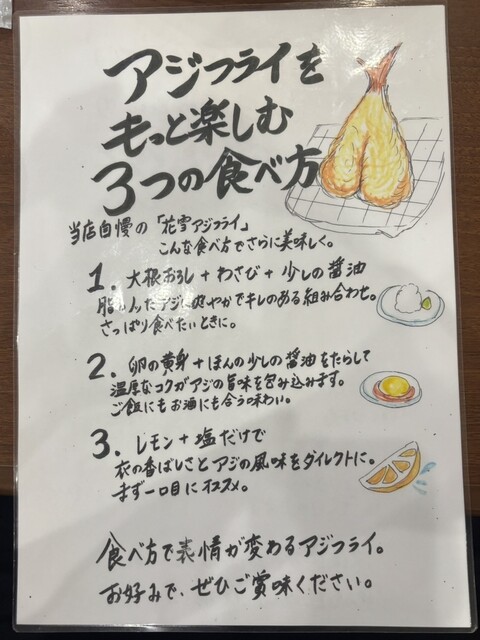 アジフライを
もっと楽しむ
3つの食べ方
当店自慢の「花雪アジフライ」
こんな食べ方でさらに美味しく。
1. 大根おろし+わさび+少しの醤油
脂ノッたアジに爽やかでキレのある組み合わせ。
さっぱり食べたいときに。
2. 卵の黄身+ほんの少しの醤油をたらして
濃厚なコクがアジの旨味を包み込みます。
ご飯にもお酒にも合う味わい。
3. レモン+塩だけで
衣の香ばしさとアジの風味をダイレクトに。
まず一口目にオススメ。
食べ方で表情が変わるアジフライ。
お好みで、ぜひご賞味ください。